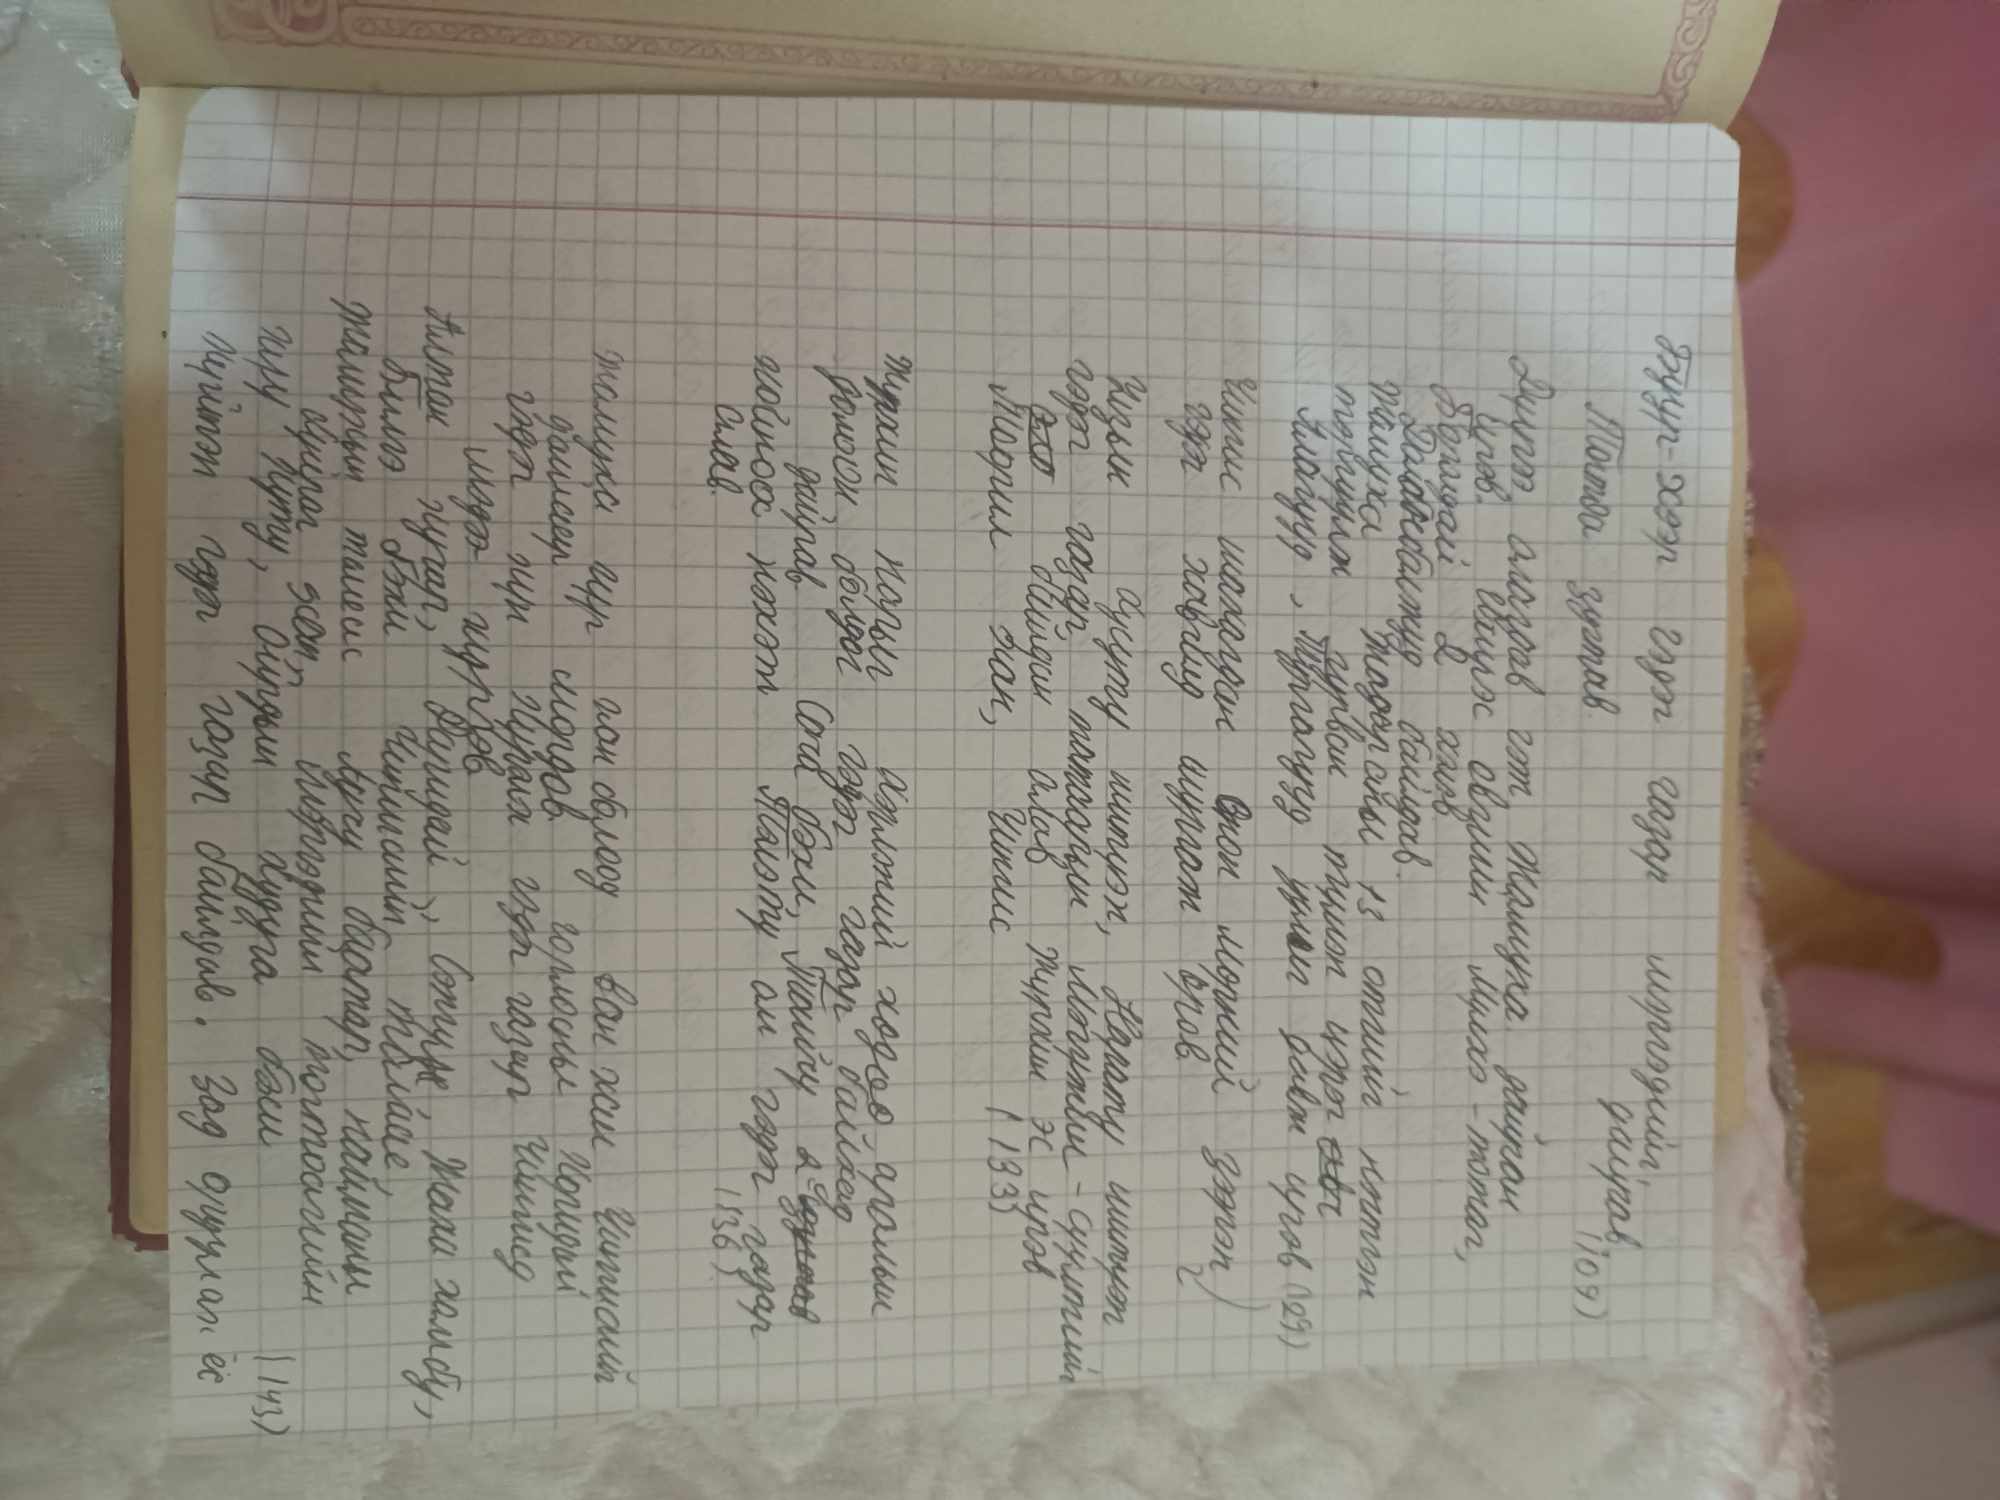 Буур-хээр гэдэг газар мэргэдийг,
дайрав.
Тогтоа зугтав. (109)
Дүүгээ алагдав гэж Жамуха дайран
ирэв. Ихирэс овгийн Мүлхэ-тотаг,
Боролдай 2 хэлэв.
Далабалжуд байлдав.
Жамуха жадараны 13 отгийг нэгтгэн
тэргүүлж гурван түмэн цэрэг
Алагууд, Тургагууд уулыг давж ирэв (129)
Чингис шахагдан Онон мөрний зээрэн
гэдэг хавчилд шургаж оров.
Улзын Хусуту шитүэн, Нарату шитүэн
гэдэг газар, татаарын Мэгүжин-Сүүлтийг
байлдан алав Журхин эс ирэв
Тоорил хан, Чингис (133)
Журхин нарыг Хэрлэний ходоо аралын
долоон болдог гэдэг газар байхад
дайрав. Сача бэхи, Тайчу 2
хойноос нэхэж Тэлэту ам гэдэг газар
алав. (136)
Жамуха гүр хан болоод Ван хан Чингисийг
дайлаар мордов. Горлосны Хоридай
гэдэг хүн Хүрэлх гэдэг газар Чингисд
мэдээ хүргэв
Алтан хучар, Даридай, Сэнгүм, Жаха хамбу,
Билгэ бэхи Чингисийн талаас,
Жамухын талаас Аучу баатар, найманы
Буйраг хан, мэргэдийн тогтоагийн
хүү Хуту, Ойрдын Худуга бэхи (143)
Хүйтэн гэдэг газар байлдав. Зад оруулах ёс